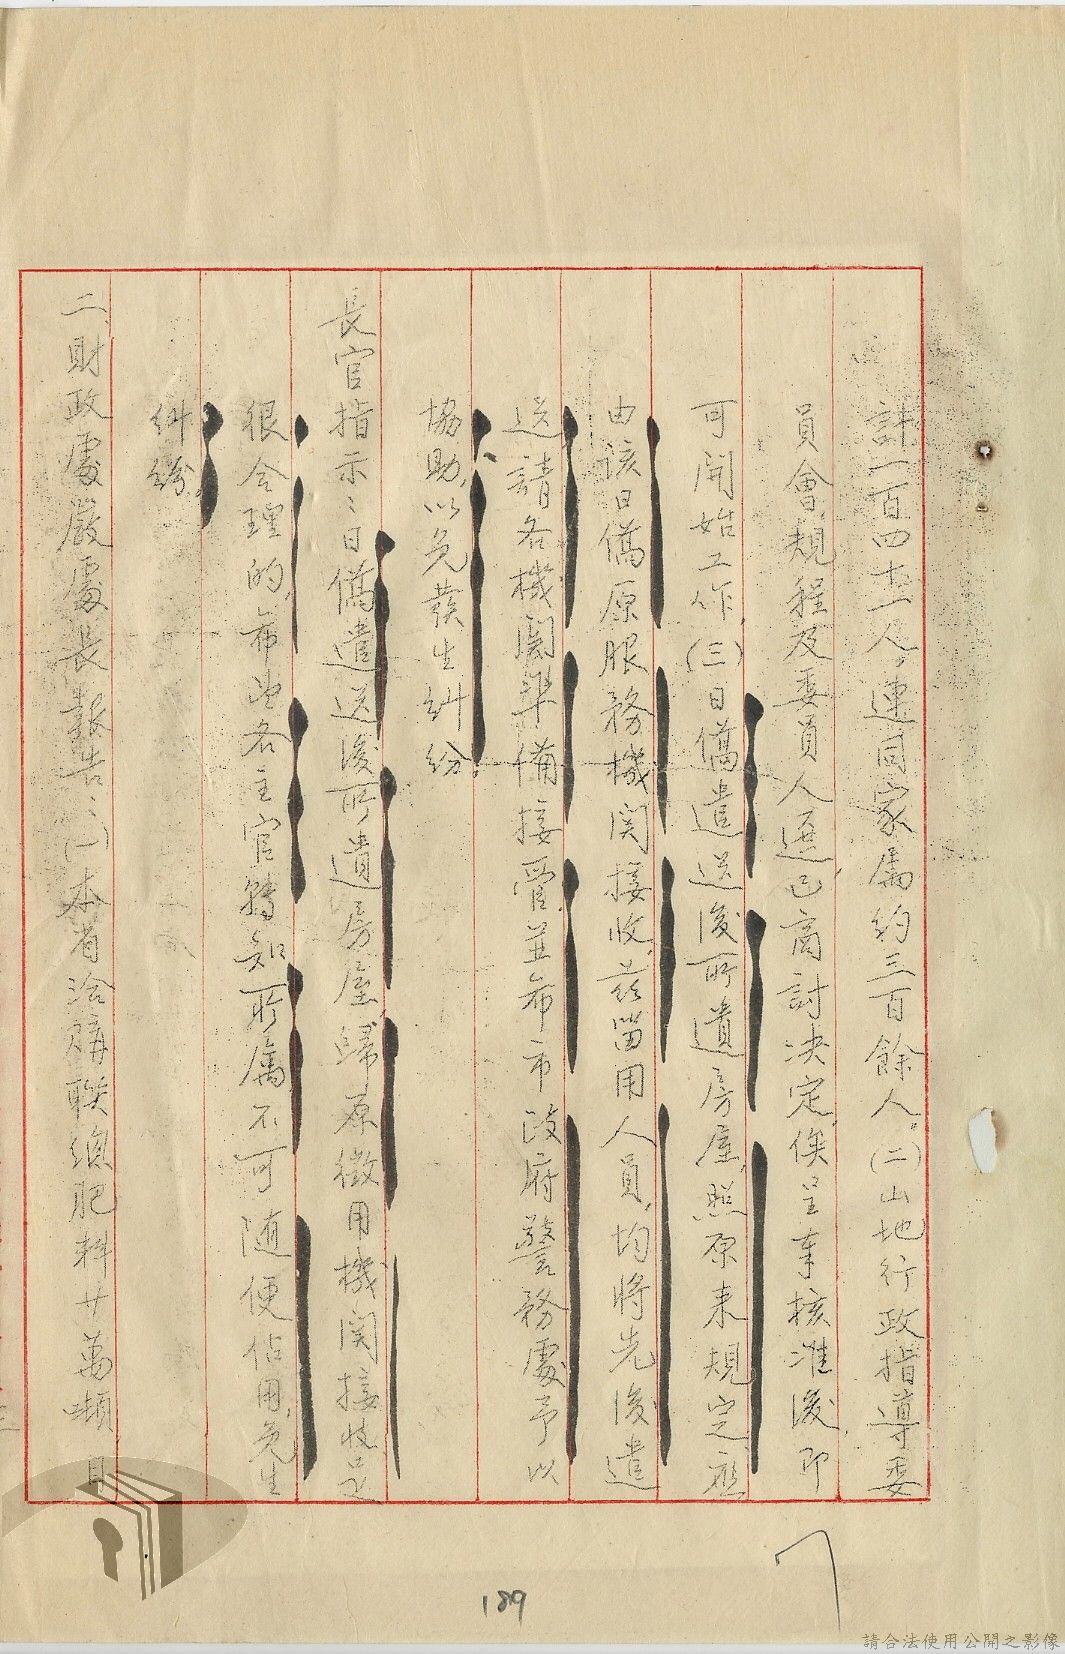 計一百四十一人，連同家屬約三百餘人。(二)山地行政指導委
員會，規程及委員人選已商討決定，俟呈奉核准後，即
可開始工作，(三)日僑遣送後所遺房屋，照原來規定，應
由該日僑原服務機関接收，茲留用人員，均將先後遣
送，請各機関準備接管，並希市政府警務處予以
協助，以免發生糾紛。
長官指示：日僑遣送後所遺房屋，歸原徵用機関接收是
很合理的，希望各主官轉知所屬不可随便佔用，免生
糾紛。
二、財政處嚴處長報告：(一)本省洽購聯總肥料廿萬噸，目
189
請合法使用公開之影像